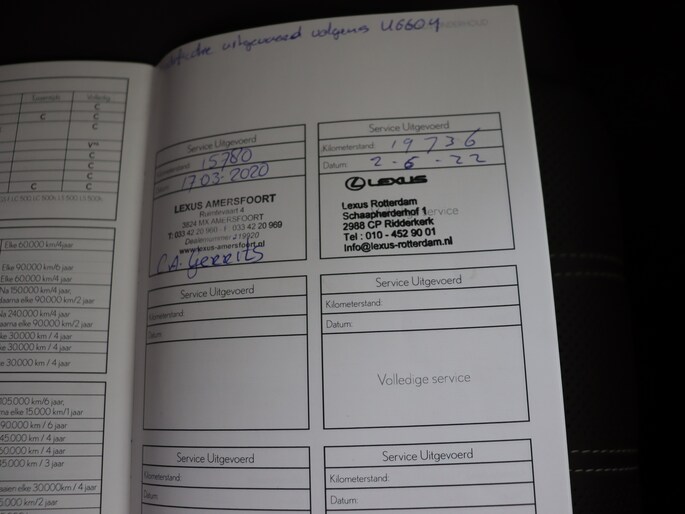 uitgevoerd volgens U6604
Tussentijds Volledig
C
C C
C
C
C
C
C C
Elke 60.000 km/4jaar
Elke 90.000 km/6 jaar
Elke 60.000 km / 4 jaar
Na 150.000 km/4 jaar,
daarna elke 90.000 km/2 jaar
Na 240.000 km/4 jaar
daarna elke 90.000 km/2 jaar
30.000 km / 4 jaar
30.000 km / 4 jaar
30.000 km / 4 jaar
105.000 km/6 jaar,
elke 15.000 km/1 jaar
90.000 km / 6 jaar
45.000 km / 4 jaar
60.000 km / 4 jaar
45.000 km / 3 jaar
elke 30.000km / 4 jaar
km/2 jaar
Service Uitgevoerd
Kilometerstand: 15780
Datum: 17 03-2020
LEXUS AMERSFOORT
Ruimtevaart 4
3824 MX AMERSFOORT
T: 033 42 20 960 | F: 033 42 20 969
Dealernummer 219920
www.lexus-amersfoort.nl
C.A. Gerrits
Service Uitgevoerd
Kilometerstand: 19736
Datum: 2-6-22
LEXUS
Lexus Rotterdam
Schaapherderhof 1
service
2988 CP Ridderkerk
Tel : 010 - 452 90 01
Info@lexus-rotterdam.nl
Service Uitgevoerd
Kilometerstand:
Datum:
Service Uitgevoerd
Kilometerstand:
Datum:
Volledige service
Service Uitgevoerd
Kilometerstand:
Datum:
Service Uitgevoerd
Kilometerstand:
Datum: